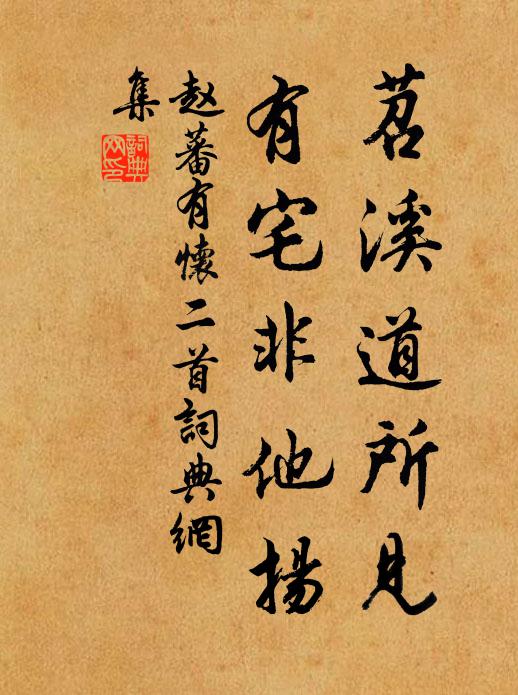 苕溪道所見
有宅非他揚
赵蕃有懷二首詞典網
集
詞典
网印